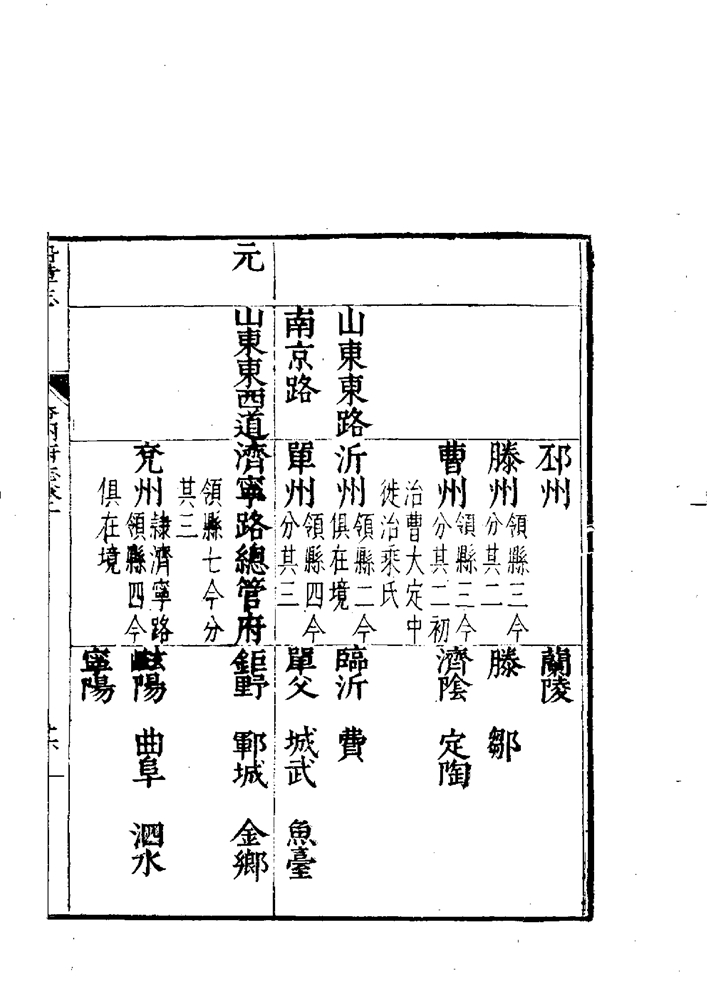 邳州 蘭陵
滕州 領縣三今分其二 滕 鄒
曹州 領縣三今分其二初 濟陰 定陶
治曹大定中徙治乘氏
山東東路 沂州 領縣二今俱在境 臨沂 費
南京路 單州 領縣四今分其三 單父 城武 魚臺
元 山東東西道 濟寧路總管府 鉅野 鄆城 金鄉
領縣七今分其三
兗州 隸濟寧路領縣四今 嵫陽 曲阜 泗水
俱在境 寧陽